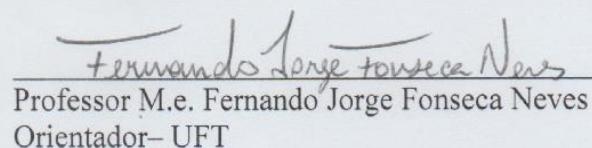 Fernando Jorge Fonseca Neves
Professor M.e. Fernando Jorge Fonseca Neves
Orientador– UFT